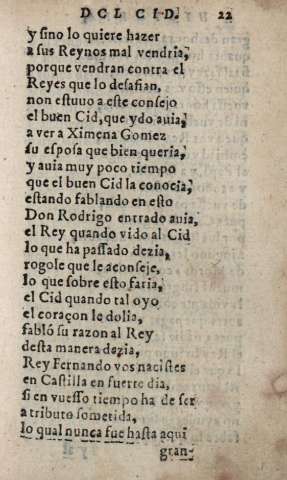 DCL CID. 22
y ſino lo quiere hazer
a sus Reynos mal vendria,
porque vendran contra el
Reyes que lo deſafian,
non eſtuuo a eſte conſejo
el buen Cid, que ydo auia,
a ver a Ximena Gomez
ſu eſpoſa que bien queria,
y auia muy poco tiempo
que el buen Cid la conocia,
eſtando fablando en eſto
Don Rodrigo entrado auia,
el Rey quando vido al Cid
lo que ha paſſado dezia,
rogole que le aconſeje,
lo que ſobre eſto faria,
el Cid quando tal oyo
el coraçon le dolia,
fabló ſu razon al Rey
deſta manera dezia,
Rey Fernando vos naciſtes
en Caſtilla en fuerte dia,
ſi en vueſſo tiempo ha de ſer
a tributo ſometida,
lo qual nunca fue haſta aqui
gran,